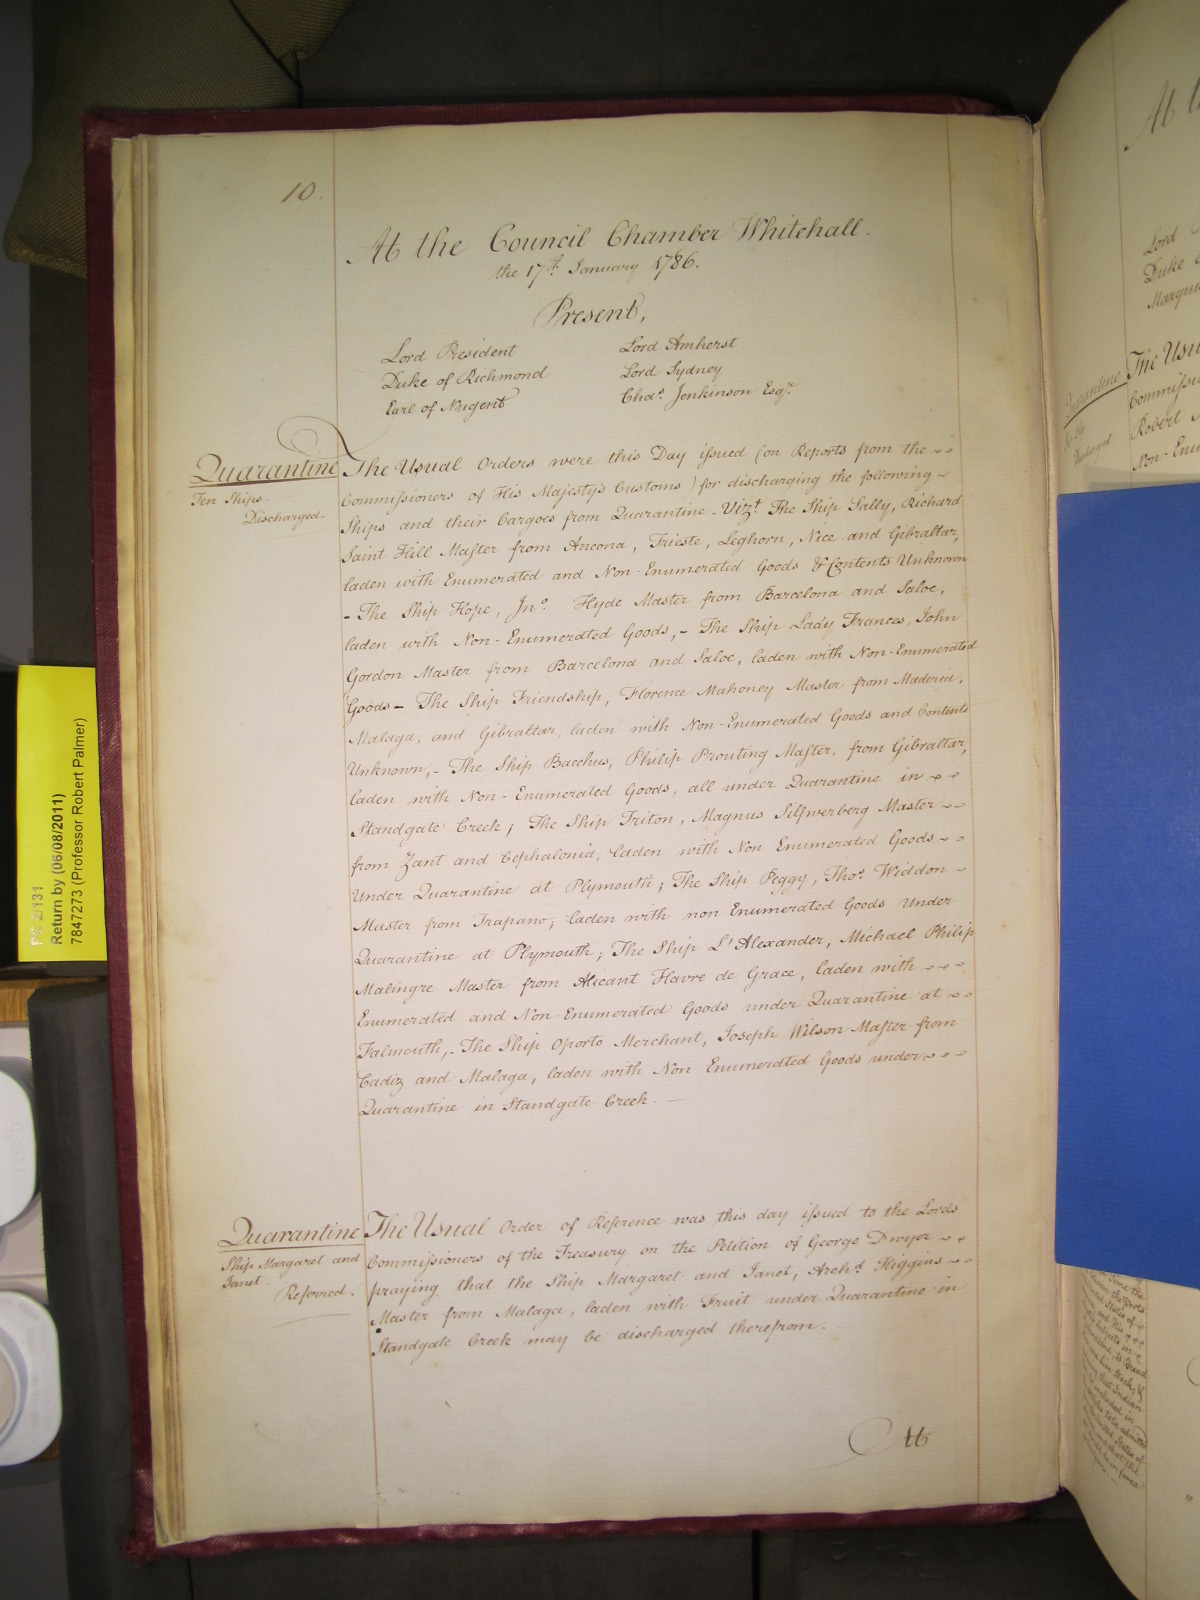 10.
At the Council Chamber Whitehall.
the 17th. January 1786.
Present,
Lord President
Duke of Richmond
Earl of Nugent
Lord Amherst
Lord Sydney
Chas. Jenkinson Esqr.
Quarantine
Ten Ships.
Discharged.
The Usual Orders were this Day issued (on Reports from the
Commissioners of His Majesty's Customs) for discharging the following
Ships and their Cargoes from Quarantine - Vizt. The Ship Sally, Richard
Saint Hill Master from Ancona, Trieste, Leghorn, Nice and Gibraltar,
laden with Enumerated and Non-Enumerated Goods & Contents Unknown
- The Ship Hope, Jno. Hyde Master from Barcelona and Saloe,
laden with Non-Enumerated Goods, - The Ship Lady Frances, John
Gordon Master from Barcelona and Saloe, laden with Non-Enumerated
Goods - The Ship Friendship, Florence Mahoney Master from Maderia,
Malaga, and Gibraltar, laden with Non-Enumerated Goods and Contents
Unknown, - The Ship Bacchus, Philip Prouting Master, from Gibraltar,
laden with Non-Enumerated Goods, all under Quarantine in
Standgate Creek; The Ship Triton, Magnus Silfwerberg Master
from Zant and Cephalonia, laden with Non Enumerated Goods
Under Quarantine at Plymouth; The Ship Peggy, Thos. Widdon
Master from Trapano, laden with non Enumerated Goods Under
Quarantine at Plymouth; The Ship L'Alexander, Michael Philip
Malingre Master from Alicant Havre de Grace, laden with
Enumerated and Non-Enumerated Goods under Quarantine at
Falmouth, - The Ship Oporto Merchant, Joseph Wilson Master from
Cadiz and Malaga, laden with Non Enumerated Goods under
Quarantine in Standgate Creek. —
Quarantine
Ship Margaret and
Janet.
Referred.
The Usual Order of Reference was this day issued to the Lords
Commissioners of the Treasury on the Petition of George Dwyer
praying that the Ship Margaret and Janet, Archd. Higgins
Master from Malaga, laden with Fruit under Quarantine in
Standgate Creek may be discharged therefrom. -
At
PC 2/131
Return by (06/08/2011)
7847273 (Professor Robert Palmer)
At
Lord
Duke
Marqu
Quarantine
Discharged
The Usu
Commissi
Robert
Non-Enu